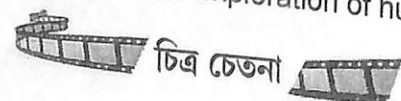 exploration of hu
চিত্র চেতনা